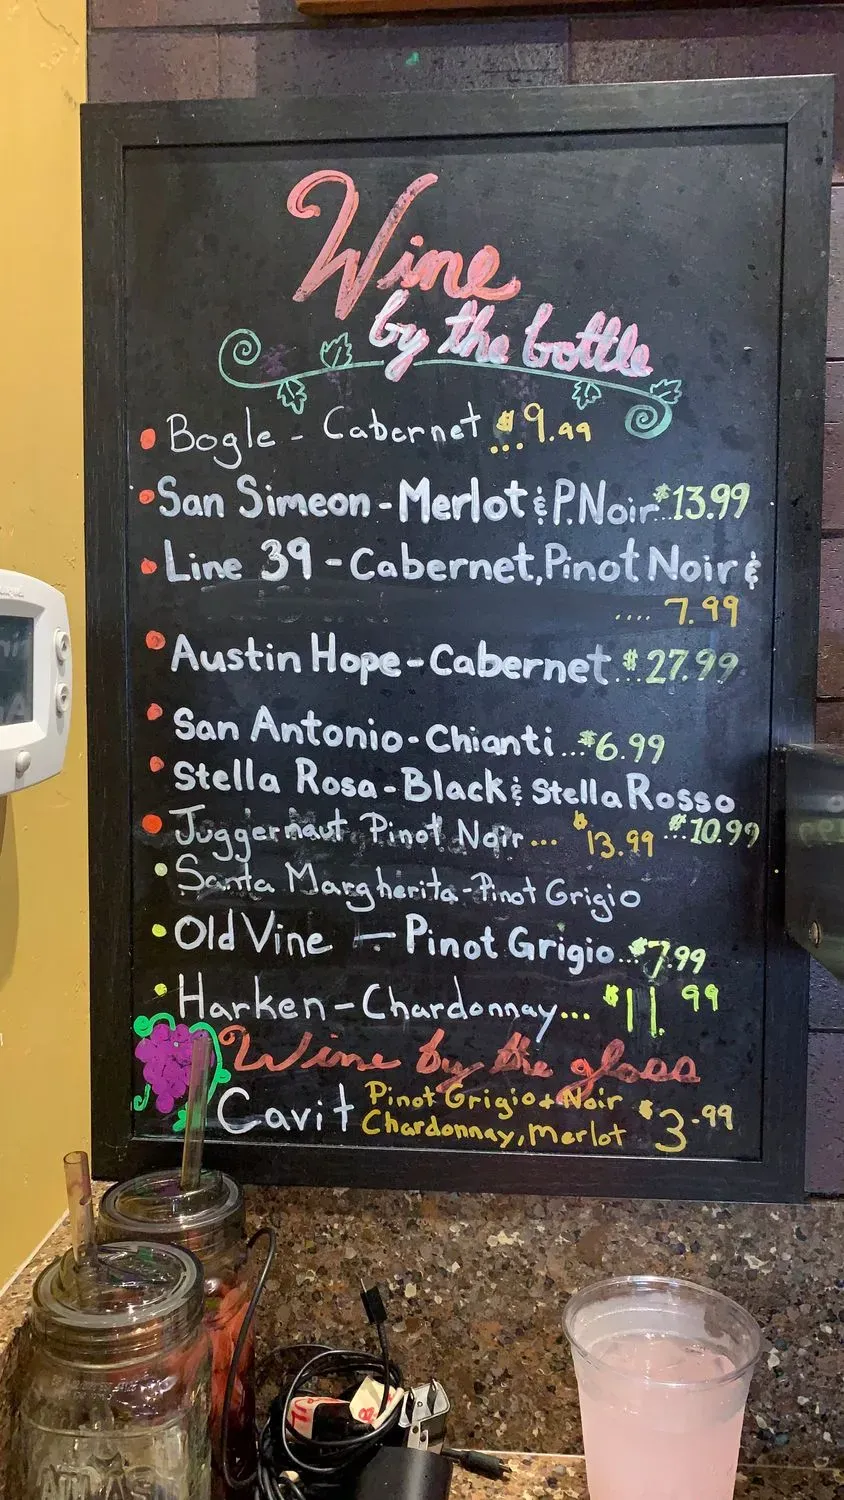 Wine
by the bottle
Bogle - Cabernet $9.99
San Simeon - Merlot & P.Noir $13.99
Line 39 - Cabernet, Pinot Noir &
.... 7.99
Austin Hope - Cabernet $27.99
San Antonio - Chianti ... $6.99
Stella Rosa - Black & Stella Rosso
... $10.99
Juggernaut Pinot Noir ... $13.99
Santa Margherita - Pinot Grigio
Old Vine — Pinot Grigio... $7.99
Harken - Chardonnay... $11.99
Wine by the glass
Cavit Pinot Grigio + Noir
Chardonnay, Merlot $3.99
ATLAS